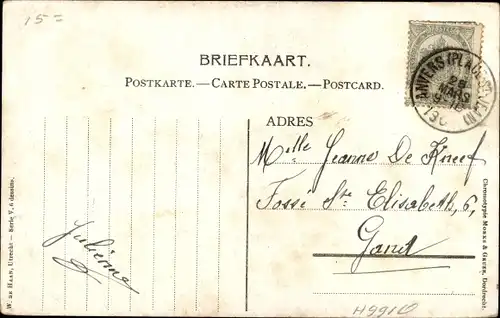 15=
BRIEFKAART.
POSTKARTE.—CARTE POSTALE.—POSTCARD.
ANVERS (PLACE ST JEAN)
28
MARS
ADRES
Melle Jeanne De Kneef
Fossé Ste Elisabeth, 6,
Gand
Julienne
W. DE HAAN, Utrecht — Serie V, 6 dessins.
Chromotypie MORKS & GEUZE, Dordrecht.
H9910